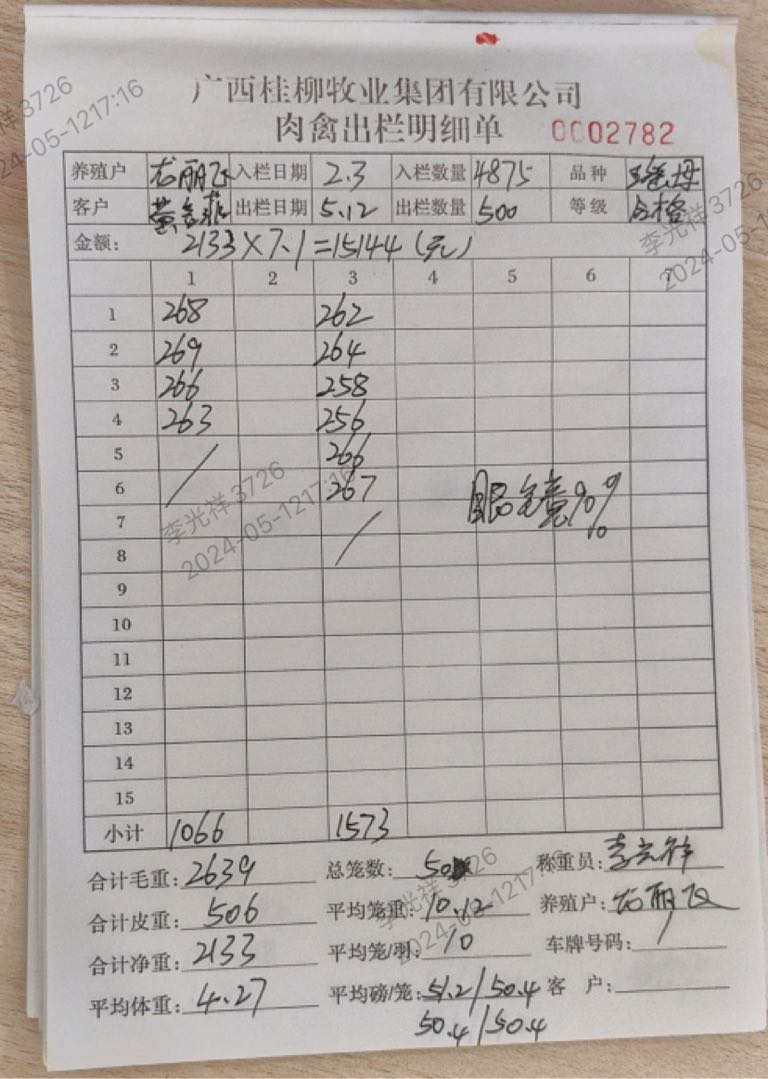 广西桂柳牧业集团有限公司
肉禽出栏明细单 0002782
养殖户 龙丽飞 入栏日期 2.3 入栏数量 4875 品种
客户 出栏日期 5.12 出栏数量 500 等级 合格
金额: 2133×7.1=15144(元)
1 2 3 4 5 6 7
1 268 262
2 269 264
3 266 258
4 263 256
5 / 266
6 267
7 /
8
9
10
11
12
13
14
15
小计 1066 1573
合计毛重: 2639 总笼数: 50 称重员: 李光祥
合计皮重: 506 平均笼重: 10.12 养殖户: 龙丽飞
合计净重: 2133 平均笼/羽: 10 车牌号码: /
平均体重: 4.27 平均磅/笼: 51.2/50.4 客 户:
50.4/50.4
李光祥 3726
2024-05-12 17:16